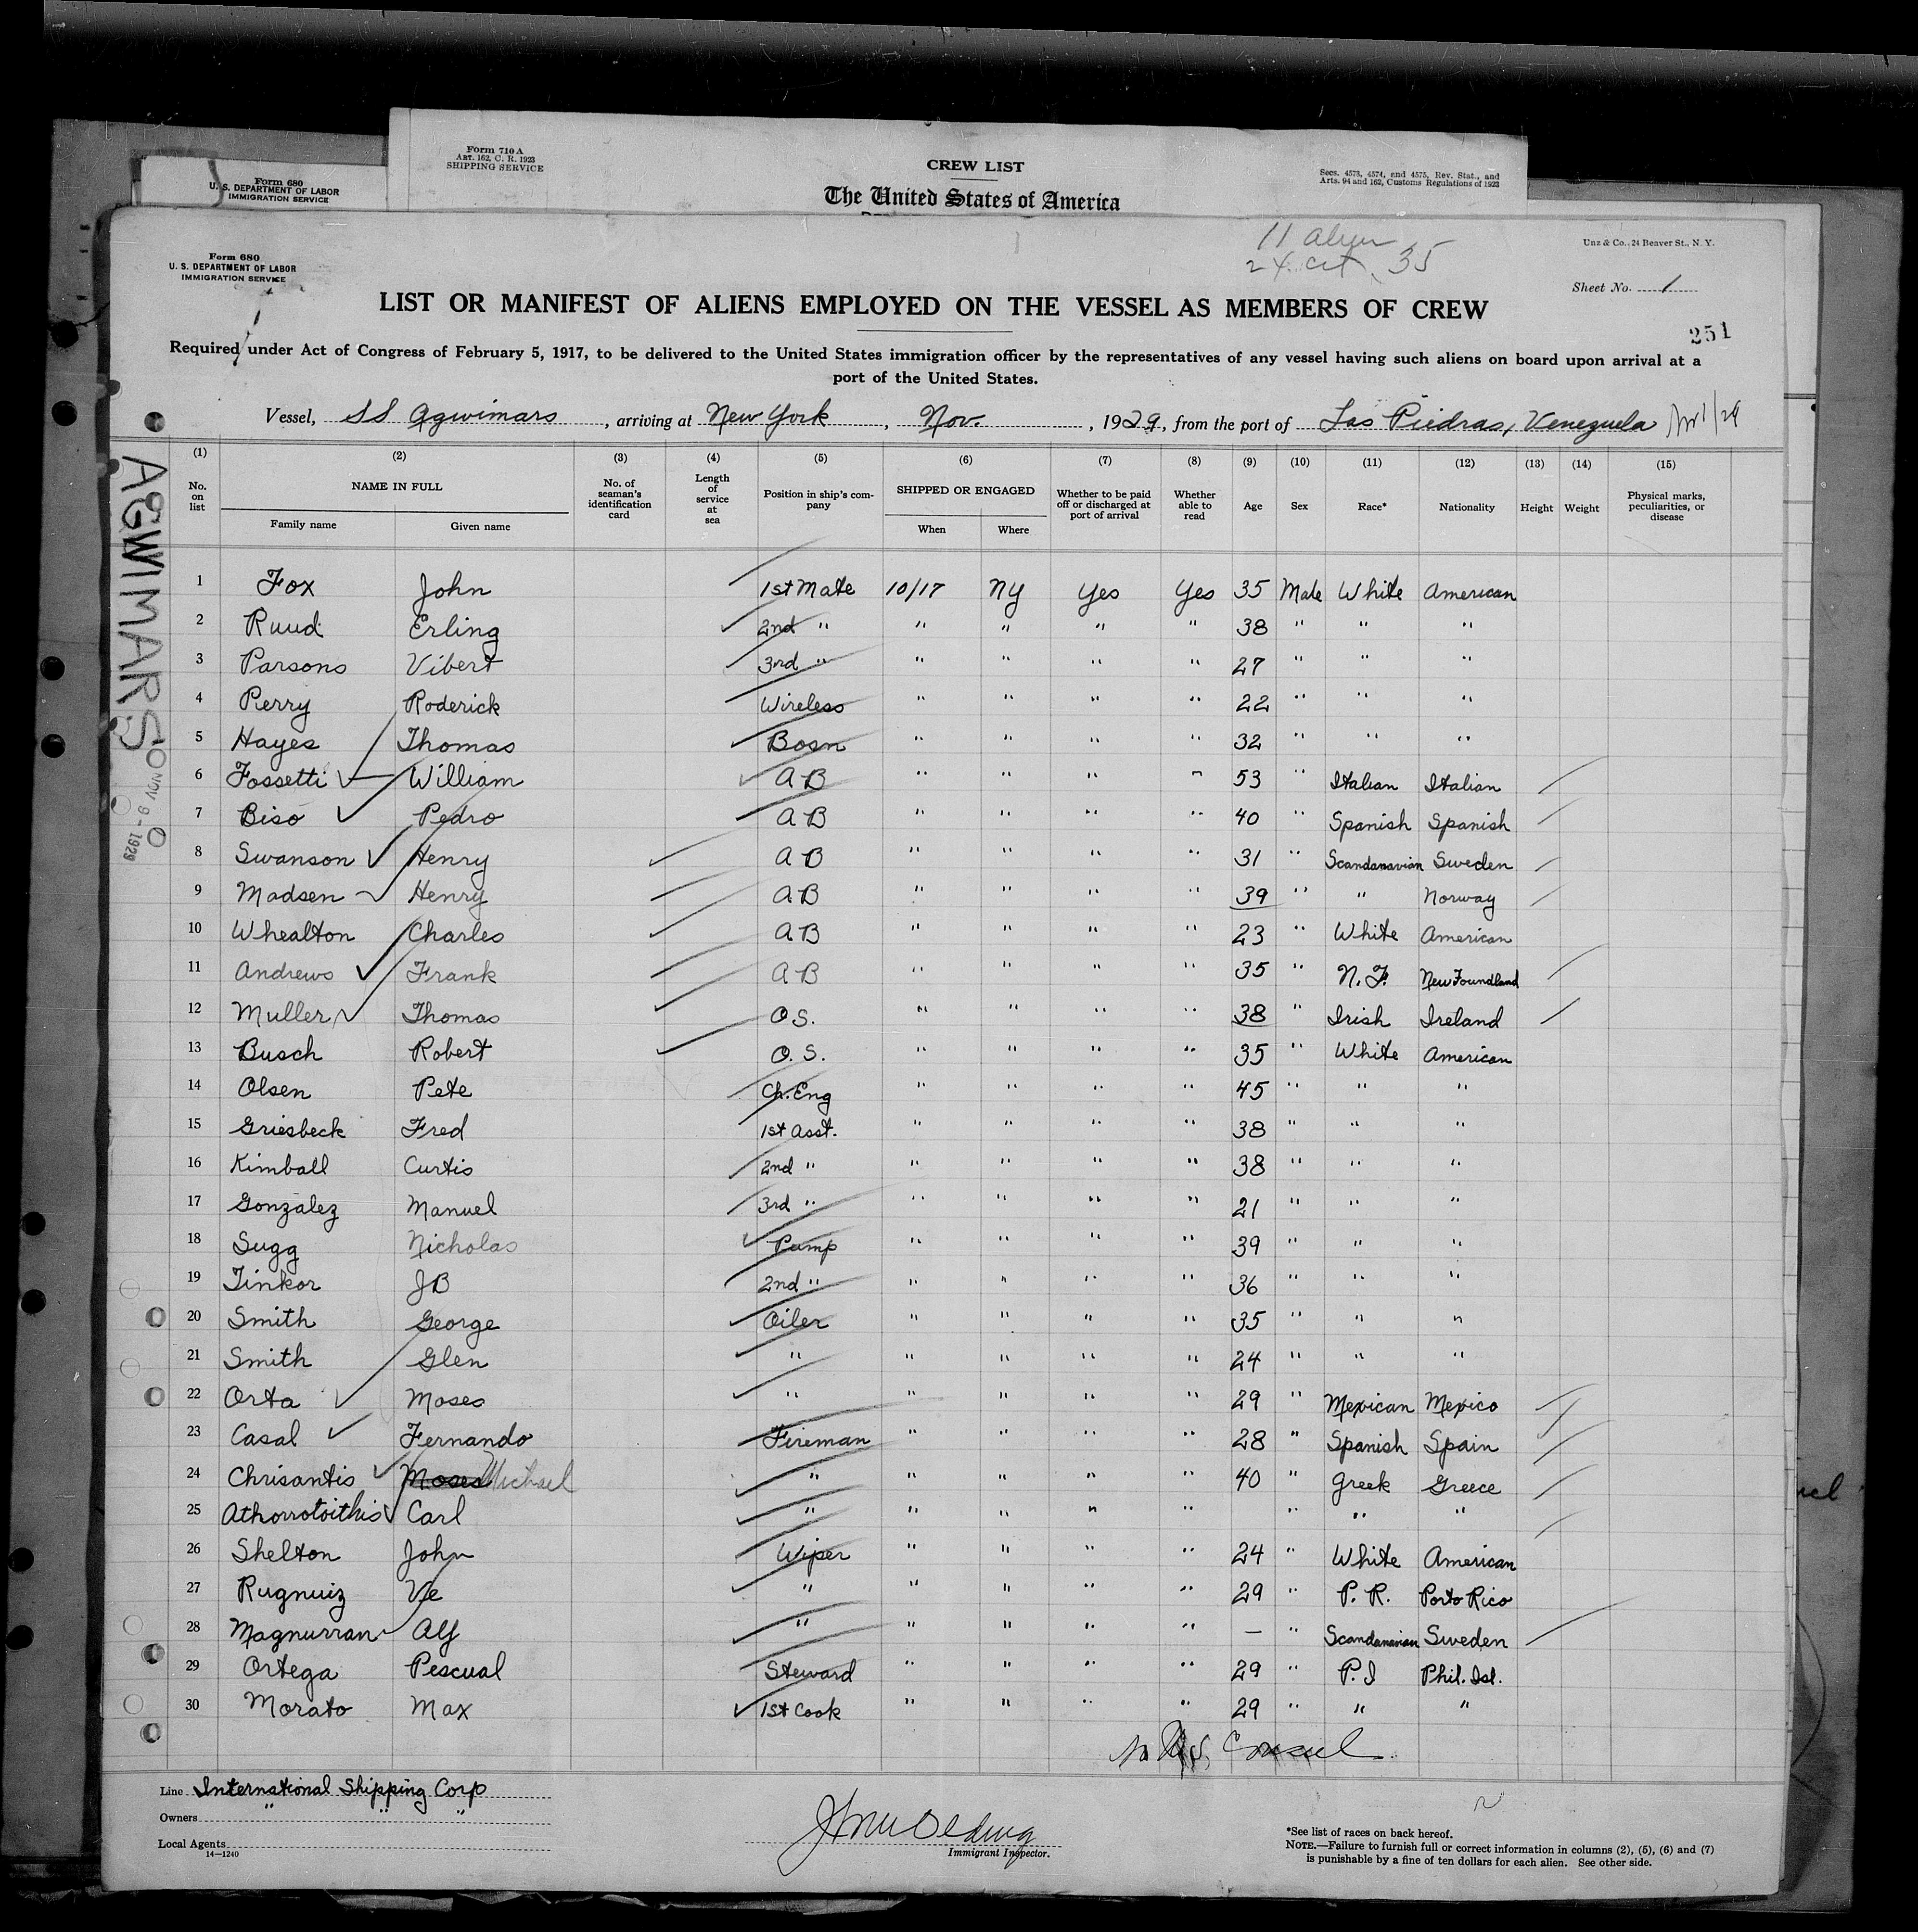 Form 710 A
ART. 162, C. R. 1923
SHIPPING SERVICE
CREW LIST
The United States of America
Secs. 4573, 4574, and 4575, Rev. Stat., and
Arts. 94 and 162, Customs Regulations of 1923
Form 680
U. S. DEPARTMENT OF LABOR
IMMIGRATION SERVICE
Form 680
U. S. DEPARTMENT OF LABOR
IMMIGRATION SERVICE
11 alien
24 cit 35
Unz & Co., 24 Beaver St., N. Y.
Sheet No. 1
LIST OR MANIFEST OF ALIENS EMPLOYED ON THE VESSEL AS MEMBERS OF CREW
251
Required under Act of Congress of February 5, 1917, to be delivered to the United States immigration officer by the representatives of any vessel having such aliens on board upon arrival at a
port of the United States.
Vessel, SS Agwimars, arriving at New York, Nov., 1929, from the port of Las Piedras, Venezuela
AGWIMARS
NOV 9 - 1929
(1) (2) (3) (4) (5) (6) (7) (8) (9) (10) (11) (12) (13) (14) (15)
No. on list NAME IN FULL Family name Given name No. of seaman's identification card Length of service at sea Position in ship's company SHIPPED OR ENGAGED When Where Whether to be paid off or discharged at port of arrival Whether able to read Age Sex Race* Nationality Height Weight Physical marks, peculiarities, or disease
1 Fox John 1st Mate 10/17 NY Yes Yes 35 Male White American
2 Ruud Erling 2nd " " " " " 38 " " "
3 Parsons Vibert 3rd " " " " " 27 " " "
4 Perry Roderick Wireless " " " " 22 " " "
5 Hayes Thomas Bosn " " " " 32 " " "
6 Fossetti William AB " " " " 53 " Italian Italian
7 Biso Pedro AB " " " " 40 " Spanish Spanish
8 Swanson Henry AB " " " " 31 " Scandanavian Sweden
9 Madsen Henry AB " " " " 39 " " Norway
10 Whealton Charles AB " " " " 23 " White American
11 Andrews Frank AB " " " " 35 " N. F. New Foundland
12 Muller Thomas O S. " " " " 38 " Irish Ireland
13 Busch Robert O. S. " " " " 35 " White American
14 Olsen Pete Ch. Eng " " " " 45 " " "
15 Griesbeck Fred 1st Asst. " " " " 38 " " "
16 Kimball Curtis 2nd " " " " " 38 " " "
17 Gonzalez Manuel 3rd " " " " " 21 " " "
18 Sugg Nicholas Pump " " " " 39 " " "
19 Tinkor JB 2nd " " " " " 36 " " "
20 Smith George Oiler " " " " 35 " " "
21 Smith Glen " " " " " 24 " " "
22 Orta Moses " " " " " 29 " Mexican Mexico
23 Casal Fernando Fireman " " " " 28 " Spanish Spain
24 Chrisantis Moses Michael " " " " " 40 " Greek Greece
25 Athorrotoithis Carl " " " " " " " "
26 Shelton John Wiper " " " " 24 " White American
27 Rugnuiz Ve " " " " " 29 " P. R. Porto Rico
28 Magnurran Alf " " " " " — " Scandanavian Sweden
29 Ortega Pescual Steward " " " " 29 " P. I Phil. Isl.
30 Morato Max 1st Cook " " " " 29 " " "
Consul
Line International Shipping Corp
Owners " " "
Local Agents
14—1240
Immigrant Inspector.
*See list of races on back hereof.
NOTE.—Failure to furnish full or correct information in columns (2), (5), (6) and (7)
is punishable by a fine of ten dollars for each alien. See other side.